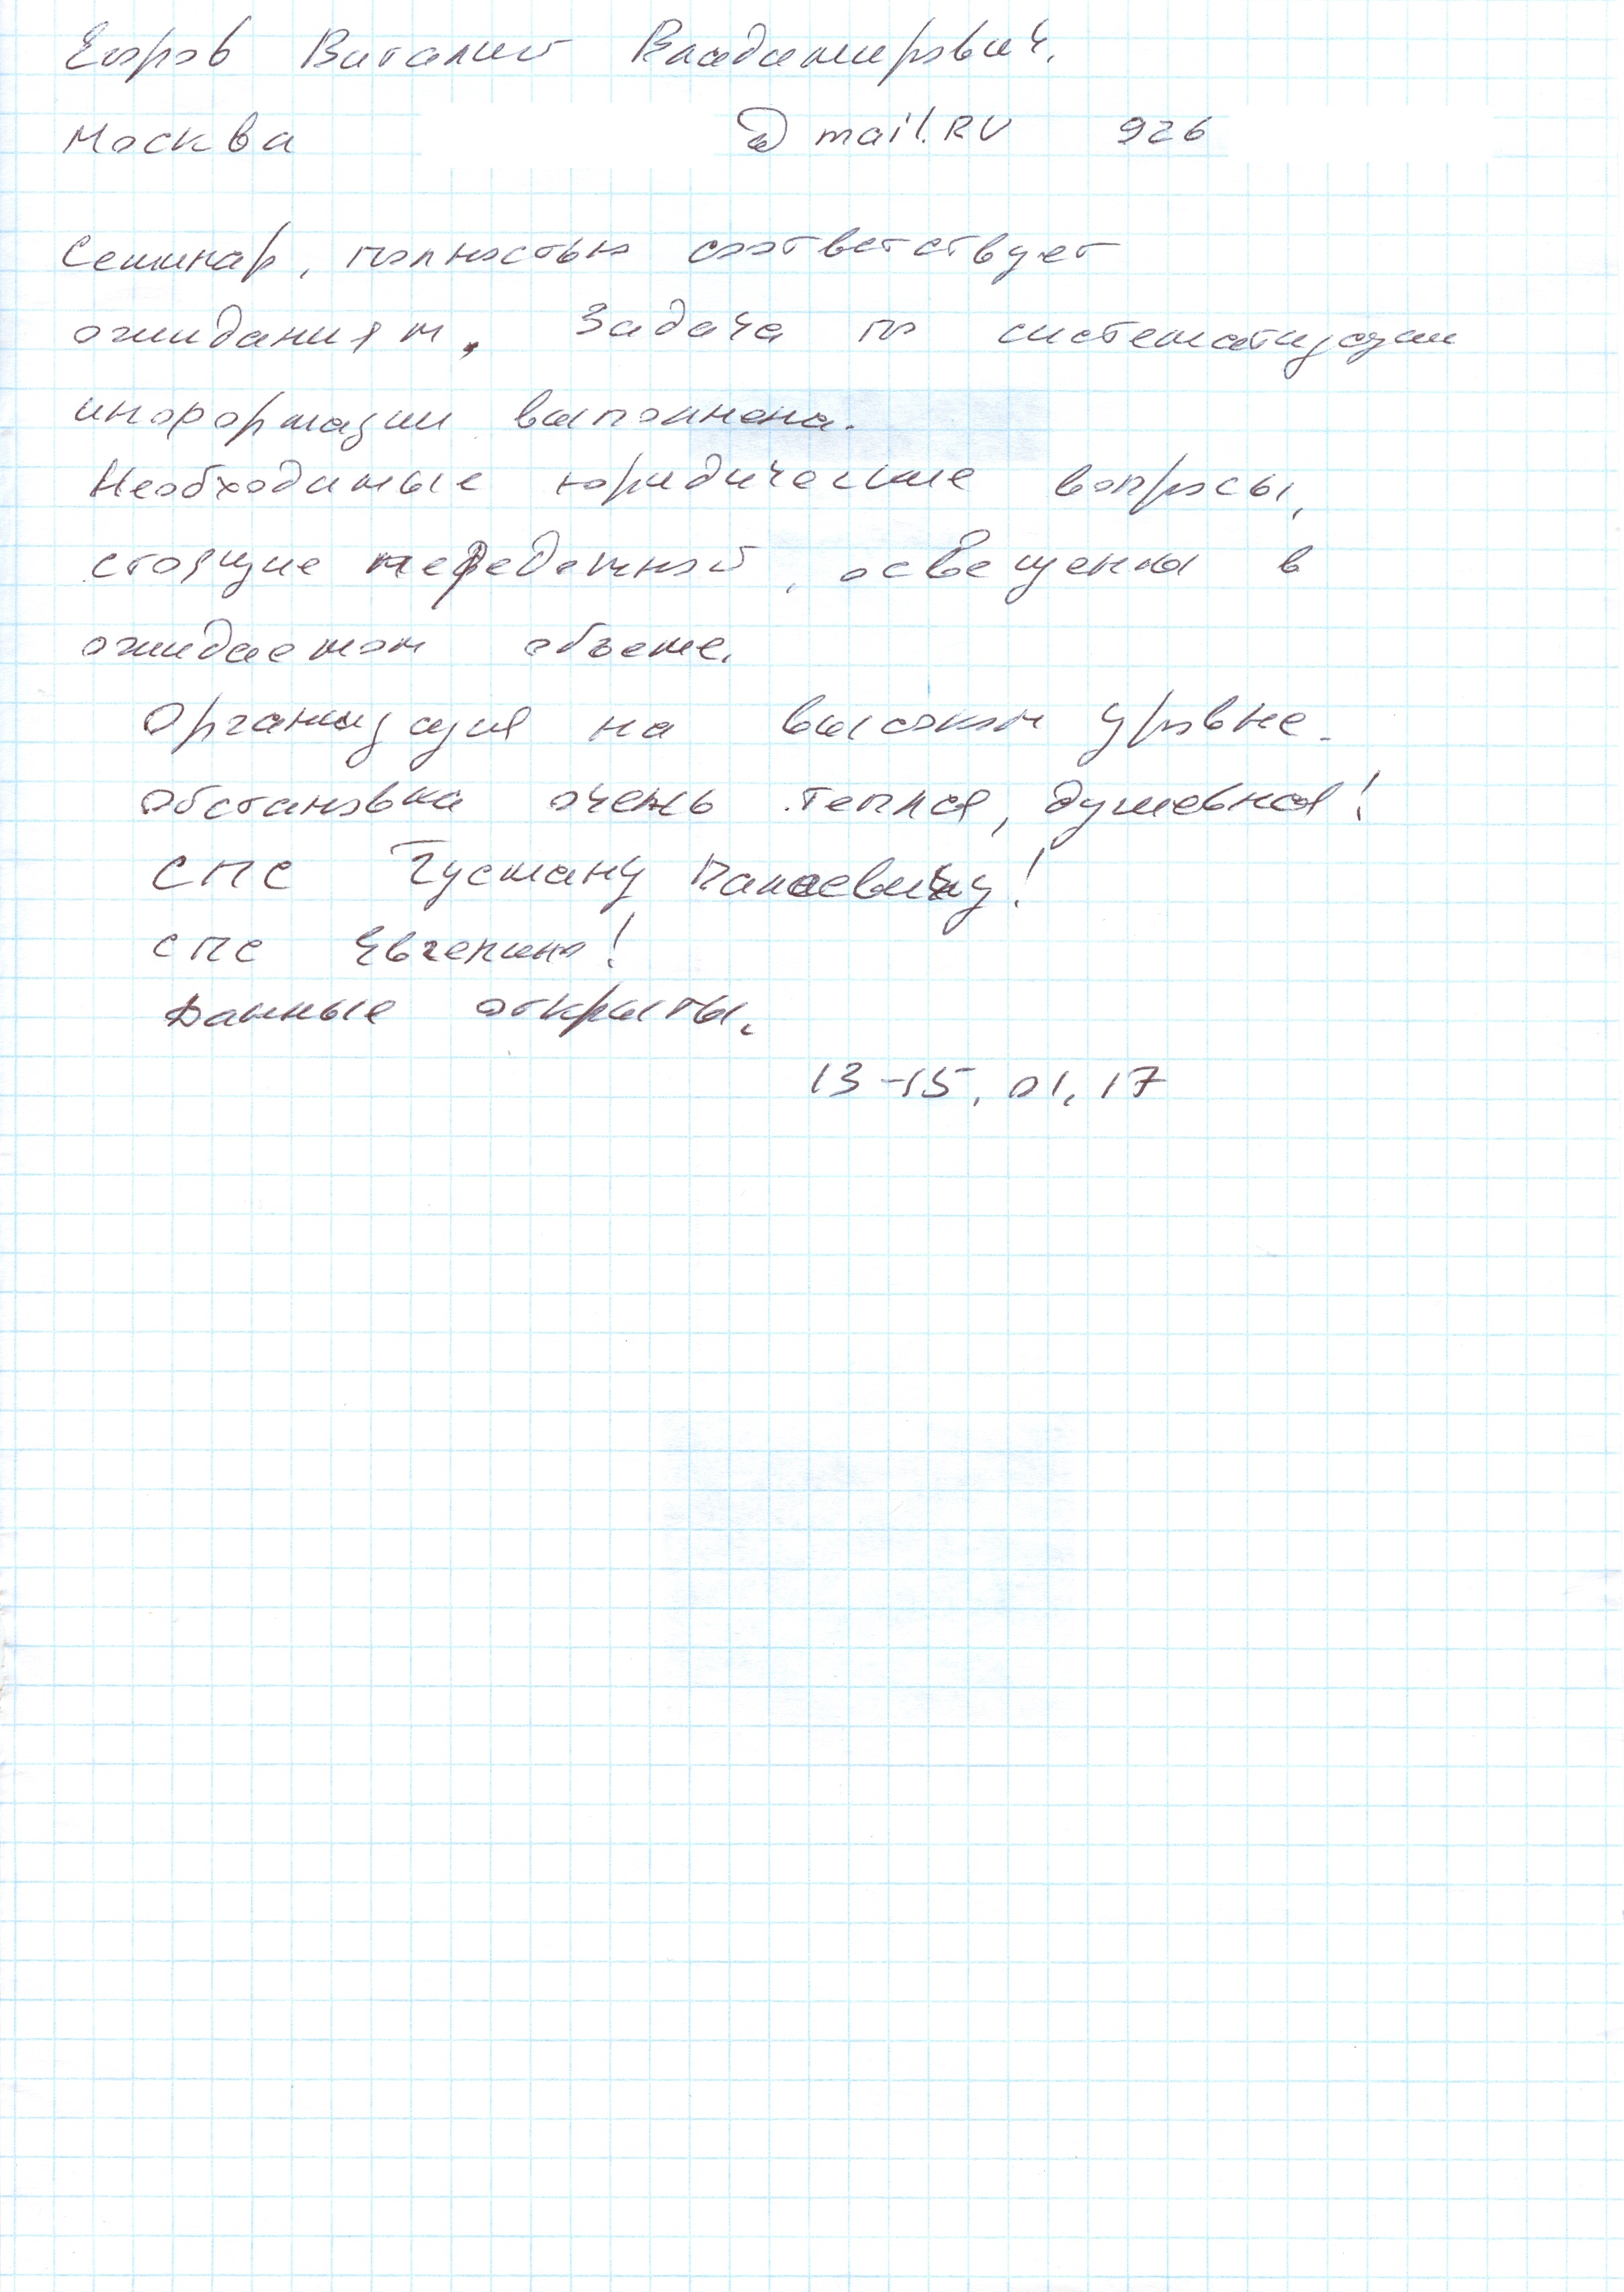 Егоров Виталий Владимирович.
Москва @ mail.RU 926
Семинар, полностью соответствует
ожиданиям. Задача по систематизации
информации выполнена.
Необходимые юридические вопросы,
стоящие передомной, освещены в
ожидаемом объеме.
Организация на высоком уровне.
Обстановка очень теплая, душевная!
СПС Гусману!
СПС Евгению!
Данные открыты.
13-15.01.17